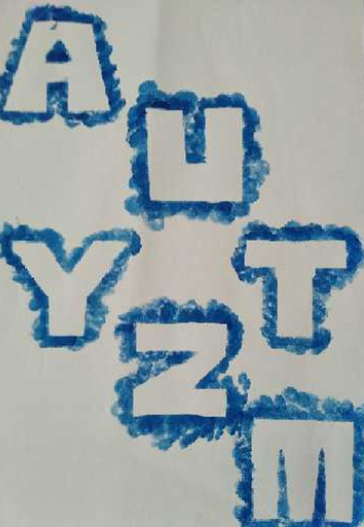 A
U
Y T
Z
M